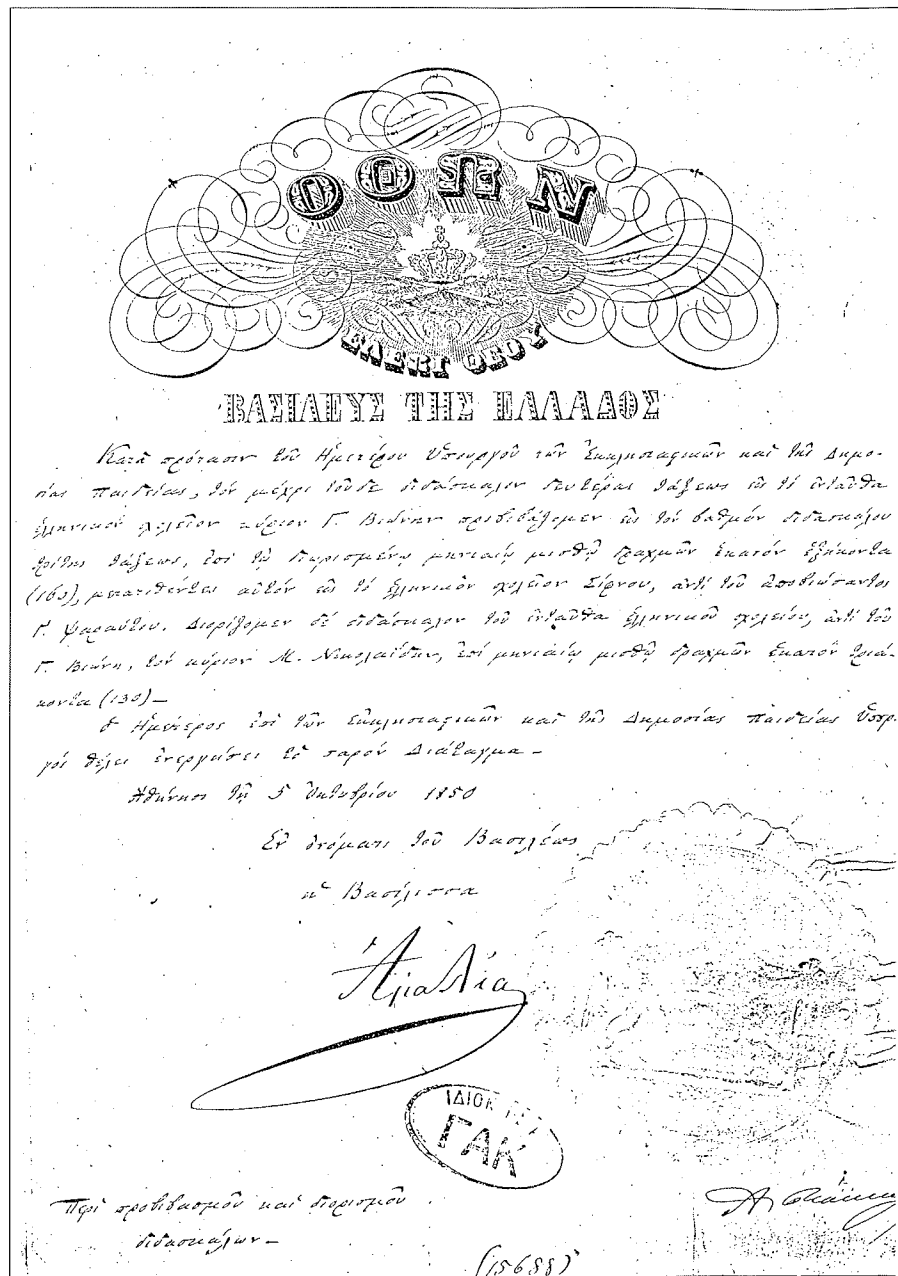 ΟΘΩΝ
ΕΛΕΩι ΘΕΟΥ
ΒΑΣΙΛΕΥΣ ΤΗΣ ΕΛΛΑΔΟΣ
Κατὰ πρότασιν τοῦ Ἡμετέρου Ὑπουργοῦ τῶν Ἐκκλησιαστικῶν καὶ τῆς Δημο-
σίας παιδείας, τὸν μέχρι τοῦδε διδάσκαλον δευτέρας τάξεως εἰς τὸ ἐνταῦθα
ἑλληνικὸν σχολεῖον κύριον Γ. Βιώνην προβιβάζομεν εἰς τὸν βαθμὸν διδασκάλου
τρίτης τάξεως, ἐπὶ τῷ διωρισμένῳ μηνιαίῳ μισθῷ δραχμῶν ἑκατὸν ἑξήκοντα
(160), μετατιθέντες αὐτὸν εἰς τὸ ἑλληνικὸν σχολεῖον, ἀντὶ τοῦ ἀποβιώσαντος
Γ. Διορίζομεν δὲ διδάσκαλον τοῦ ἐνταῦθα ἑλληνικοῦ σχολείου, ἀντὶ τοῦ
Γ. Βιώνη, τὸν κύριον Μ. Νικολαΐδην, ἐπὶ μηνιαίῳ μισθῷ δραχμῶν ἑκατὸν τριά-
κοντα (130)—
Ὁ Ἡμέτερος ἐπὶ τῶν Ἐκκλησιαστικῶν καὶ τῆς Δημοσίας παιδείας Ὑπουρ-
γὸς θέλει ἐνεργήσει τὸ παρὸν Διάταγμα—
Ἀθήνησι τῇ 5 Ὀκτωβρίου 1850
Ἐν ὀνόματι τοῦ Βασιλέως
ἡ Βασίλισσα
Ἀμαλία
ΓΑΚ
Περὶ προβιβασμοῦ καὶ διορισμοῦ
διδασκάλων—
(15688)